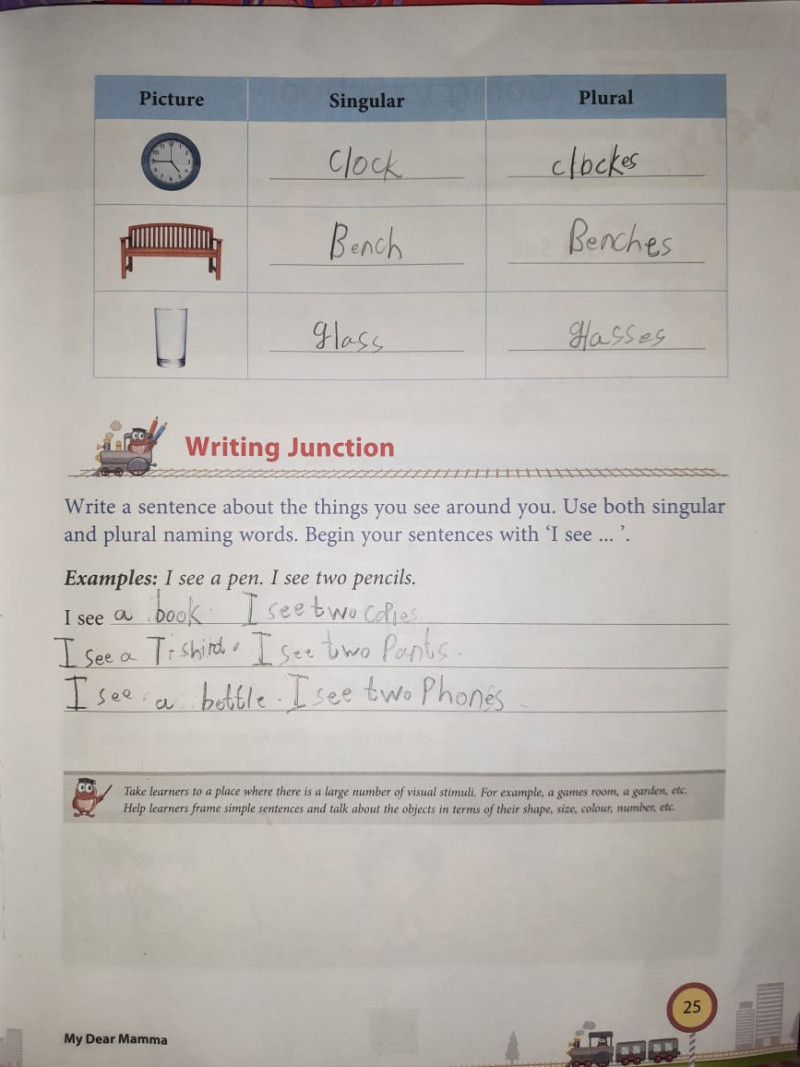 Picture Singular Plural
Clock clockes
Bench Benches
glass glasses
Writing Junction
Write a sentence about the things you see around you. Use both singular
and plural naming words. Begin your sentences with ‘I see ... ’.
Examples: I see a pen. I see two pencils.
I see a book. I see two copies
I see a T-shirt. I see two Pants.
I see a bottle. I see two Phones.
Take learners to a place where there is a large number of visual stimuli. For example, a games room, a garden, etc.
Help learners frame simple sentences and talk about the objects in terms of their shape, size, colour, number, etc.
25
My Dear Mamma